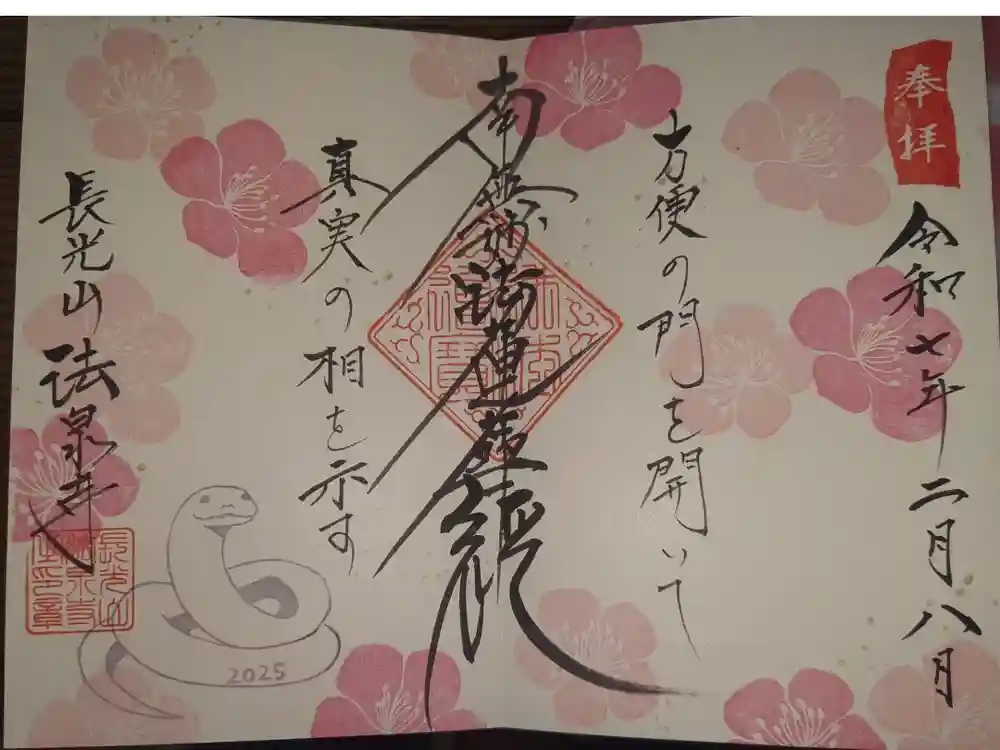 奉拝
令和七年 二月八日
方便の門を開いて
南無妙法蓮華経
真実の相を示す
長光山 法泉寺
長光山
法泉寺
之印章
2025